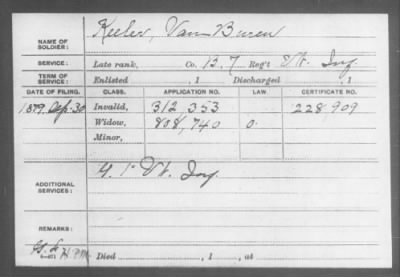 NAME OF SOLDIER: Keeler, Van Buren
SERVICE: Late rank, Co. B. 7 Reg't Vt. Inf.
TERM OF SERVICE: Enlisted , 1 Discharged , 1
DATE OF FILING. CLASS. APPLICATION NO. LAW. CERTIFICATE NO.
1879 30 Invalid, 312 353 228 909
Widow, 808,740
Minor,
ADDITIONAL SERVICES: 1 Vt. Inf.
REMARKS:
Died , 1 , at